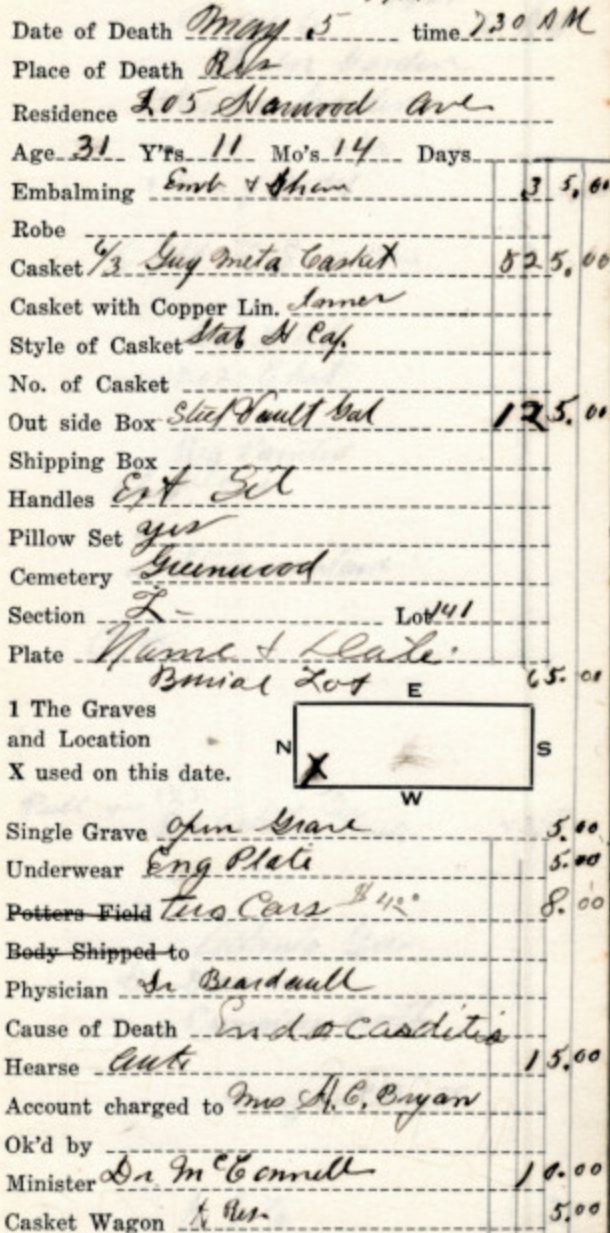 Date of Death May 5 time 730 AM
Place of Death Res
Residence 205 Harwood Ave
Age 31 Y'rs 11 Mo's 14 Days
Embalming Emb & Shav 35.00
Robe
Casket 6/3 Guy Meta Casket 525.00
Casket with Copper Lin. Inner
Style of Casket Cap.
No. of Casket
Out side Box Steel Vault Gal 125.00
Shipping Box
Handles Ext Sil
Pillow Set yes
Cemetery Greenwood
Section L Lot 141
Plate Name & Date.
Burial Lot 65.00
E
1 The Graves
and Location
N S
X
X used on this date.
W
Single Grave Open Grave 5.00
Underwear Eng Plate 5.00
Potters Field Two Cars $4.00 8.00
Body Shipped to
Physician Dr
Cause of Death Endocarditis
Hearse Auto 15.00
Account charged to Mrs H.C. Bryan
Ok'd by
Minister Dr McConnell 10.00
Casket Wagon Res 5.00